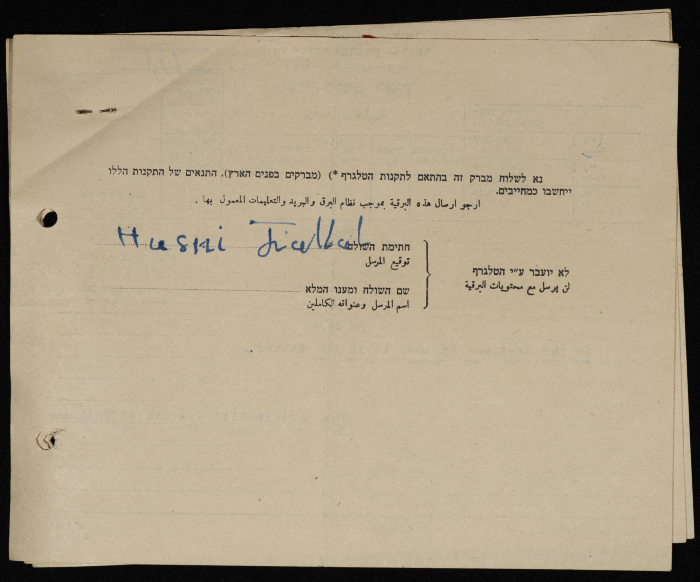 נא לשלוח מברק זה בהתאם לתקנות הטלגרף *) (מברקים בפנים הארץ). התנאים של התקנות הללו
ייחשבו כמחייבים.
ارجو ارسال هذه البرقية بموجب نظام البرق والبريد والتعليمات المعمول بها .
חתימת השולח
توقيع المرسل
שם השולח ומענו המלא
اسم المرسل وعنوانه الكاملين
לא יועבר ע״י הטלגרף
لن يرسل مع محتويات البرقية